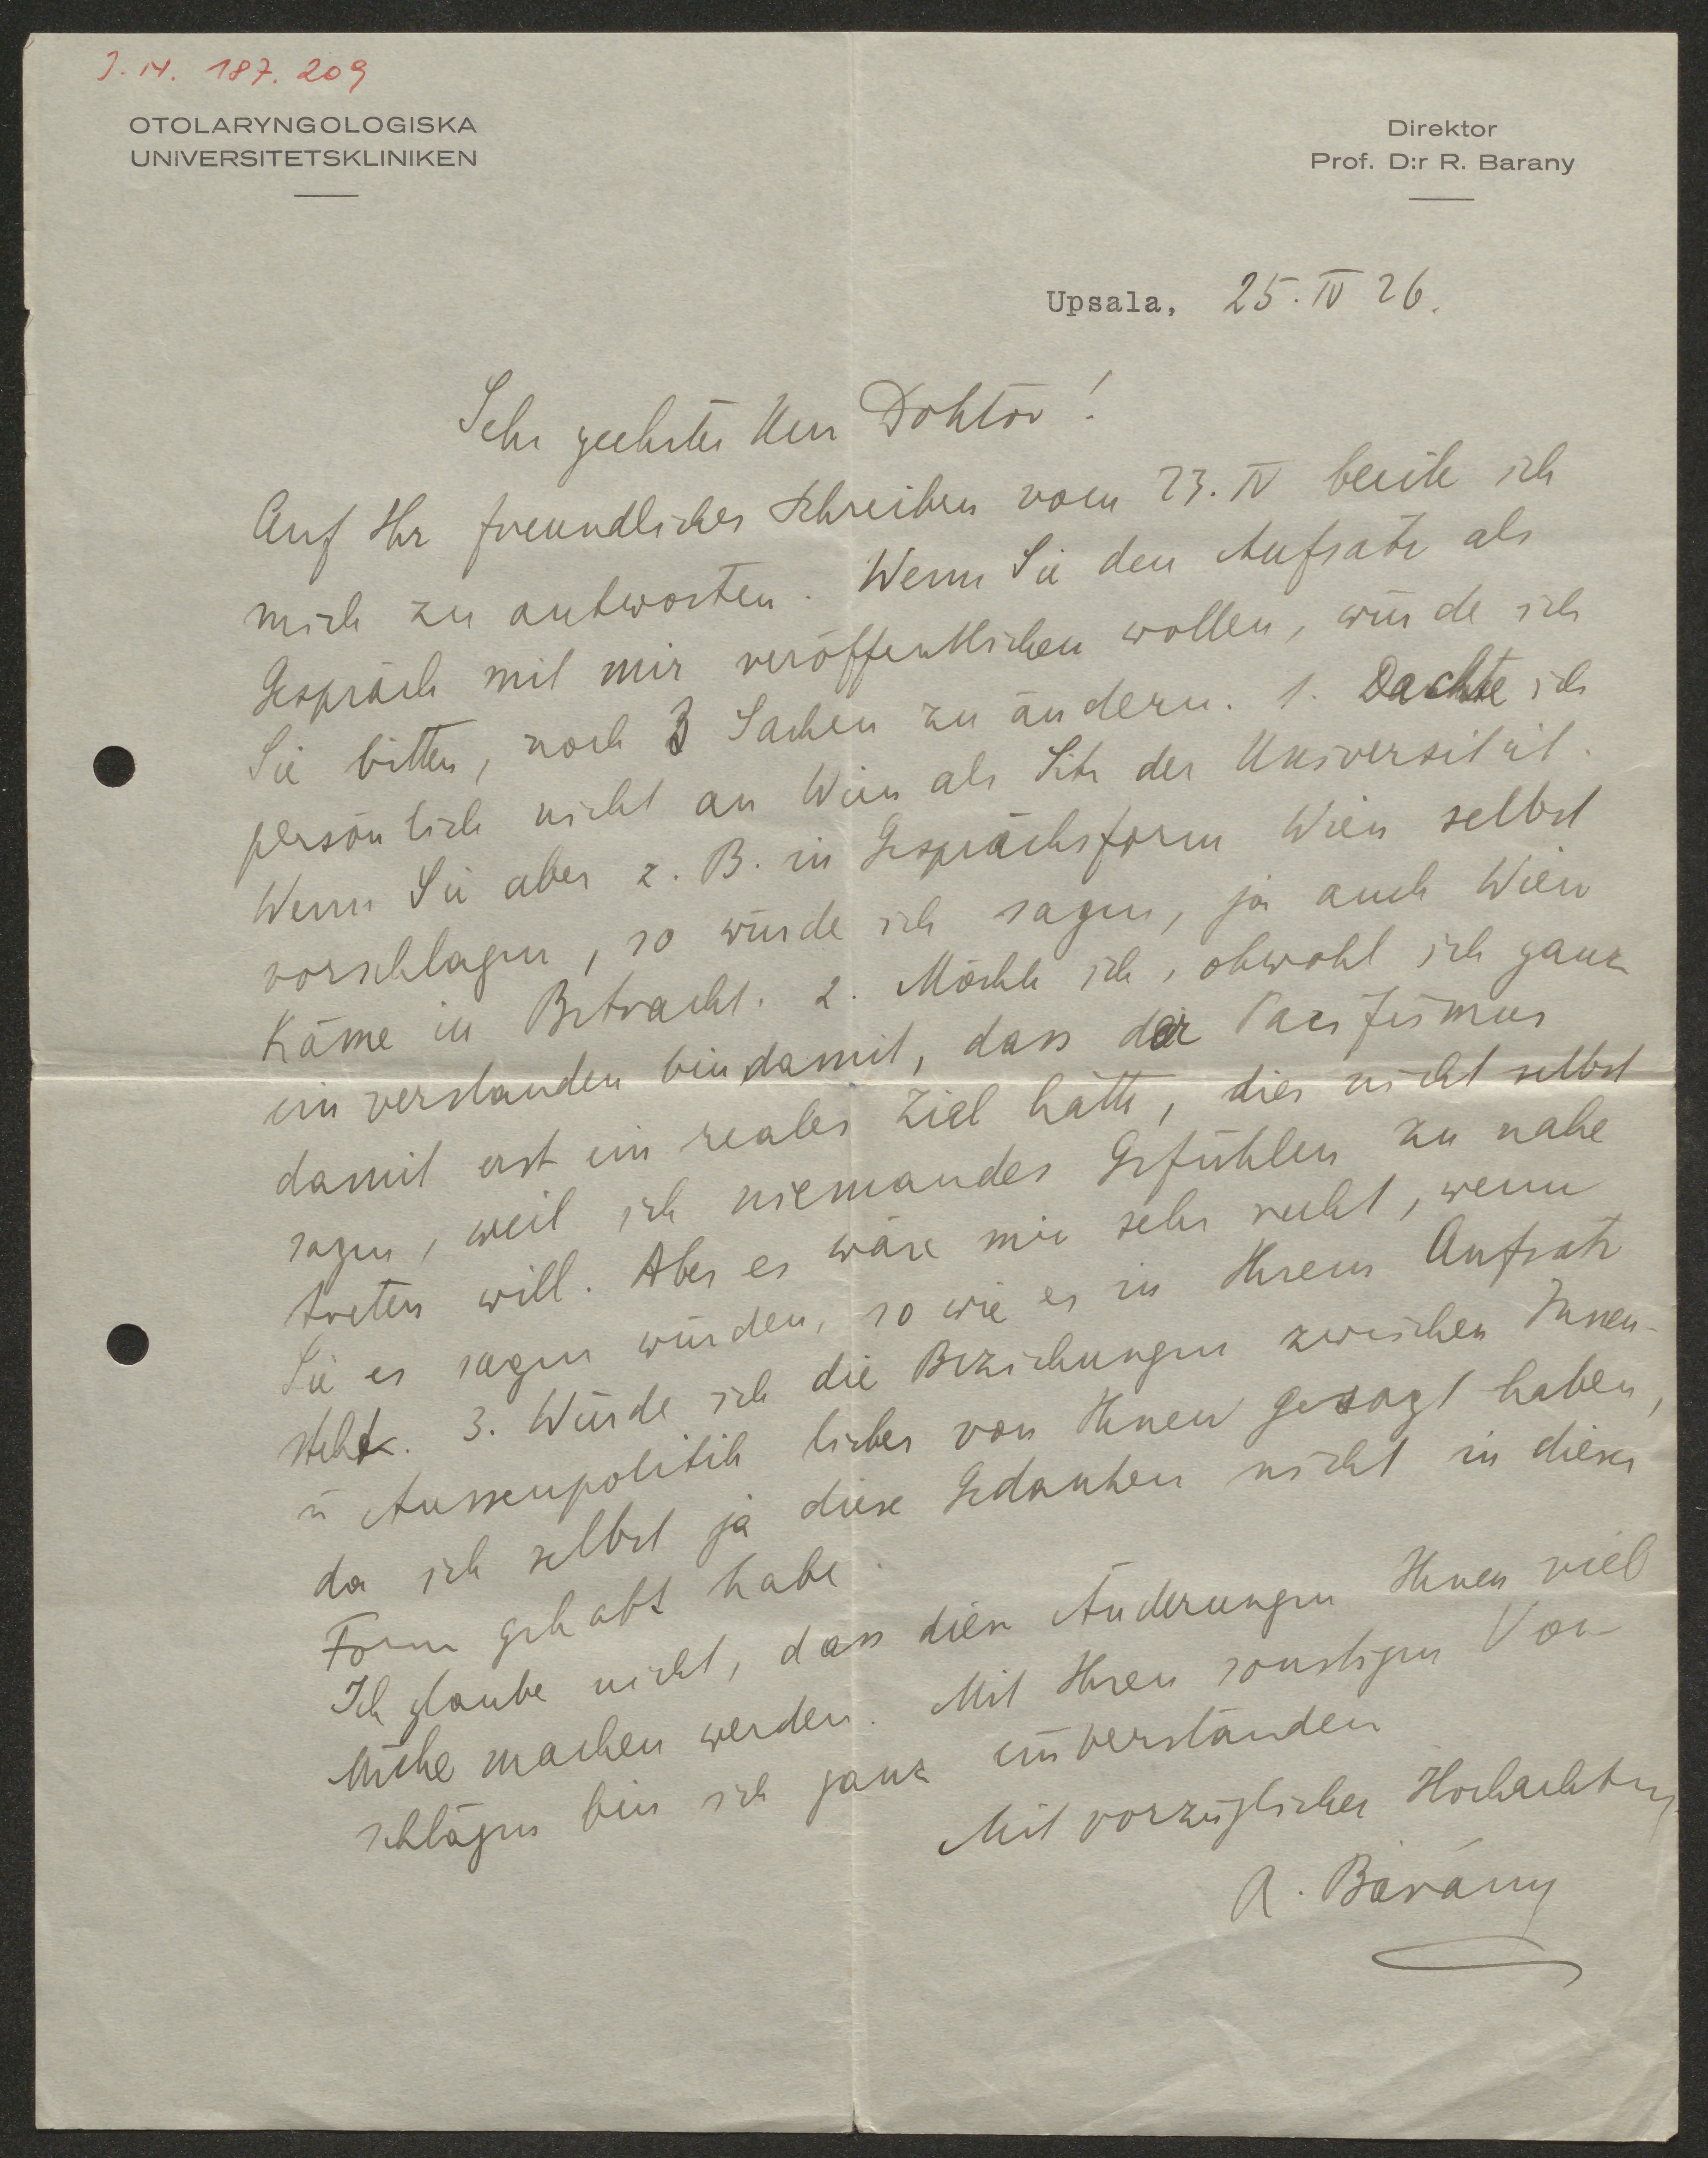 J. N. 187. 209
OTOLARYNGOLOGISKA
UNIVERSITETSKLINIKEN
Direktor
Prof. D:r R. Barany
Upsala, 25. IV 26.
Sehr geehrter Herr Doktor!
Auf Ihr freundliches Schreiben vom 23. IV beeile ich
mich zu antworten. Wenn Sie den Aufsatz als
Gespräch mit mir veröffentlichen wollen, würde ich
Sie bitten, noch 3 Sachen zu ändern. 1. Dachte ich
persönlich nicht an Wien als Sitz der Universität.
Wenn Sie aber z. B. in Gesprächsform Wien selbst
vorschlagen, so würde ich sagen, ja auch Wien
käme in Betracht. 2. Möchte ich, obwohl ich ganz
einverstanden bin damit, dass der Pacifismus
damit erst ein reales Ziel hätte, dies nicht selbst
sagen, weil ich niemandes Gefühlen zu nahe
treten will. Aber es wäre mir sehr recht, wenn
Sie es sagen würden, so wie es in Ihrem Aufsatz
steht. 3. Würde ich die Beziehungen zwischen Innen-
u Aussenpolitik lieber von Ihnen gesagt haben,
da ich selbst ja diese Gedanken nicht in dieser
Form gehabt habe.
Ich glaube nicht, dass diese Änderungen Ihnen viel
Mühe machen werden. Mit Ihren sonstigen Vor-
schlägen bin ich ganz einverstanden
Mit vorzüglicher Hochachtung
R. Bárány